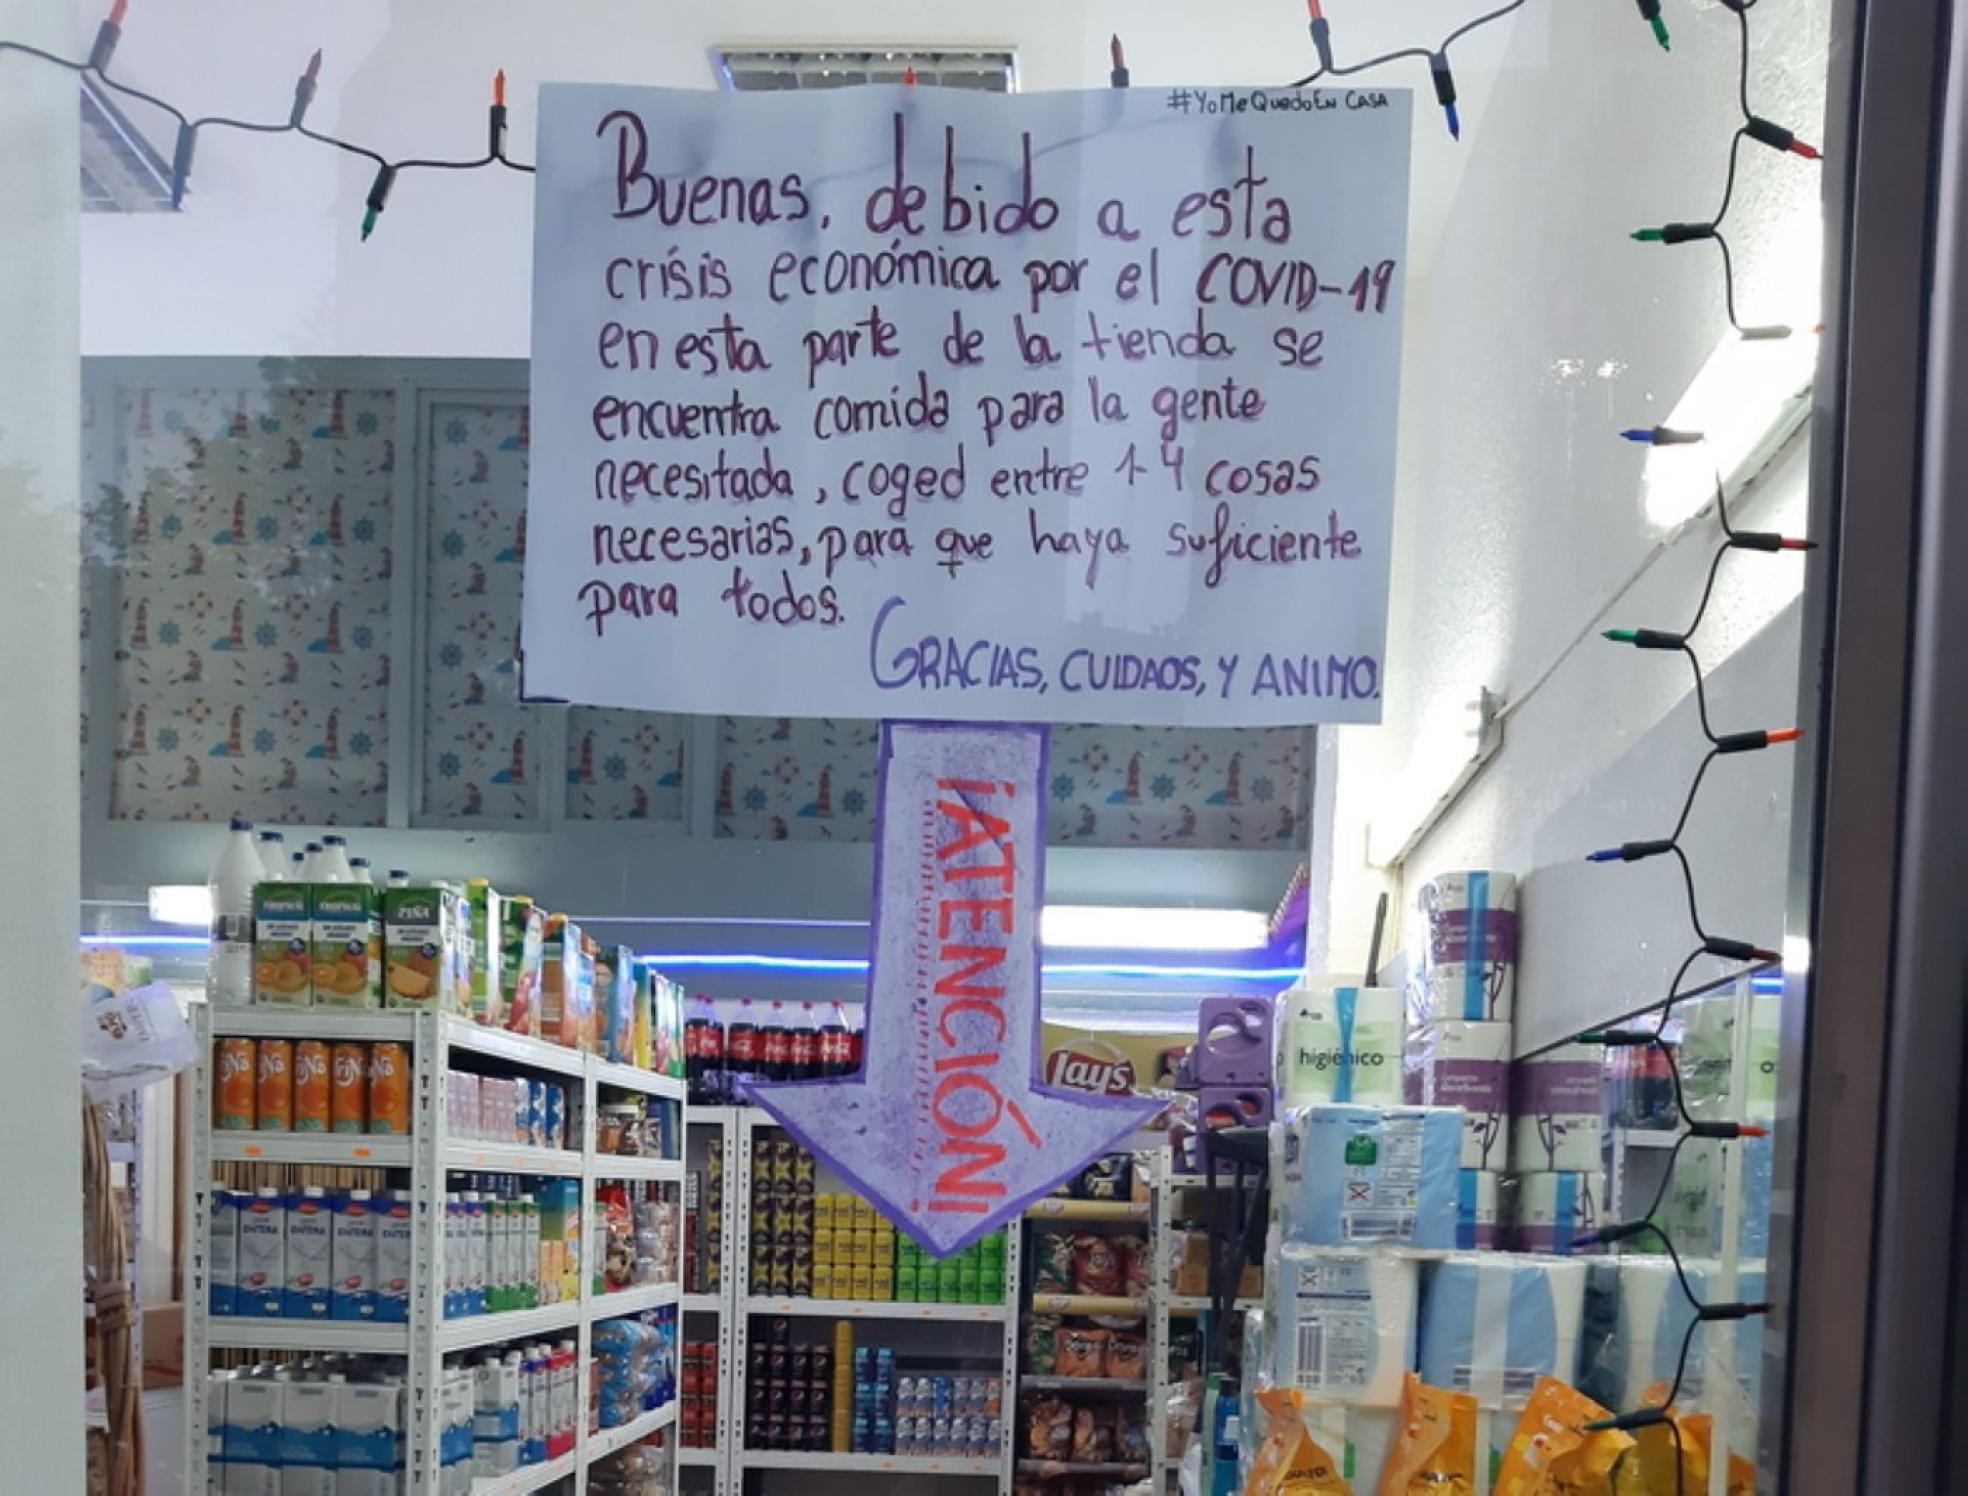 #YoMeQuedoEn CASA
Buenas, debido a esta
crísis económica por el COVID-19
en esta parte de la tienda se
encuentra comida para la gente
necesitada, coged entre 1-4 cosas
necesarias, para que haya suficiente
para todos.
GRACIAS, CUIDAOS, Y ANIMO.
¡ATENCIÓN!
TROPICAL
TROPICAL
PIÑA
Lay's
higiénico
ENTERA
ENTERA
ENTERA
ENTERA